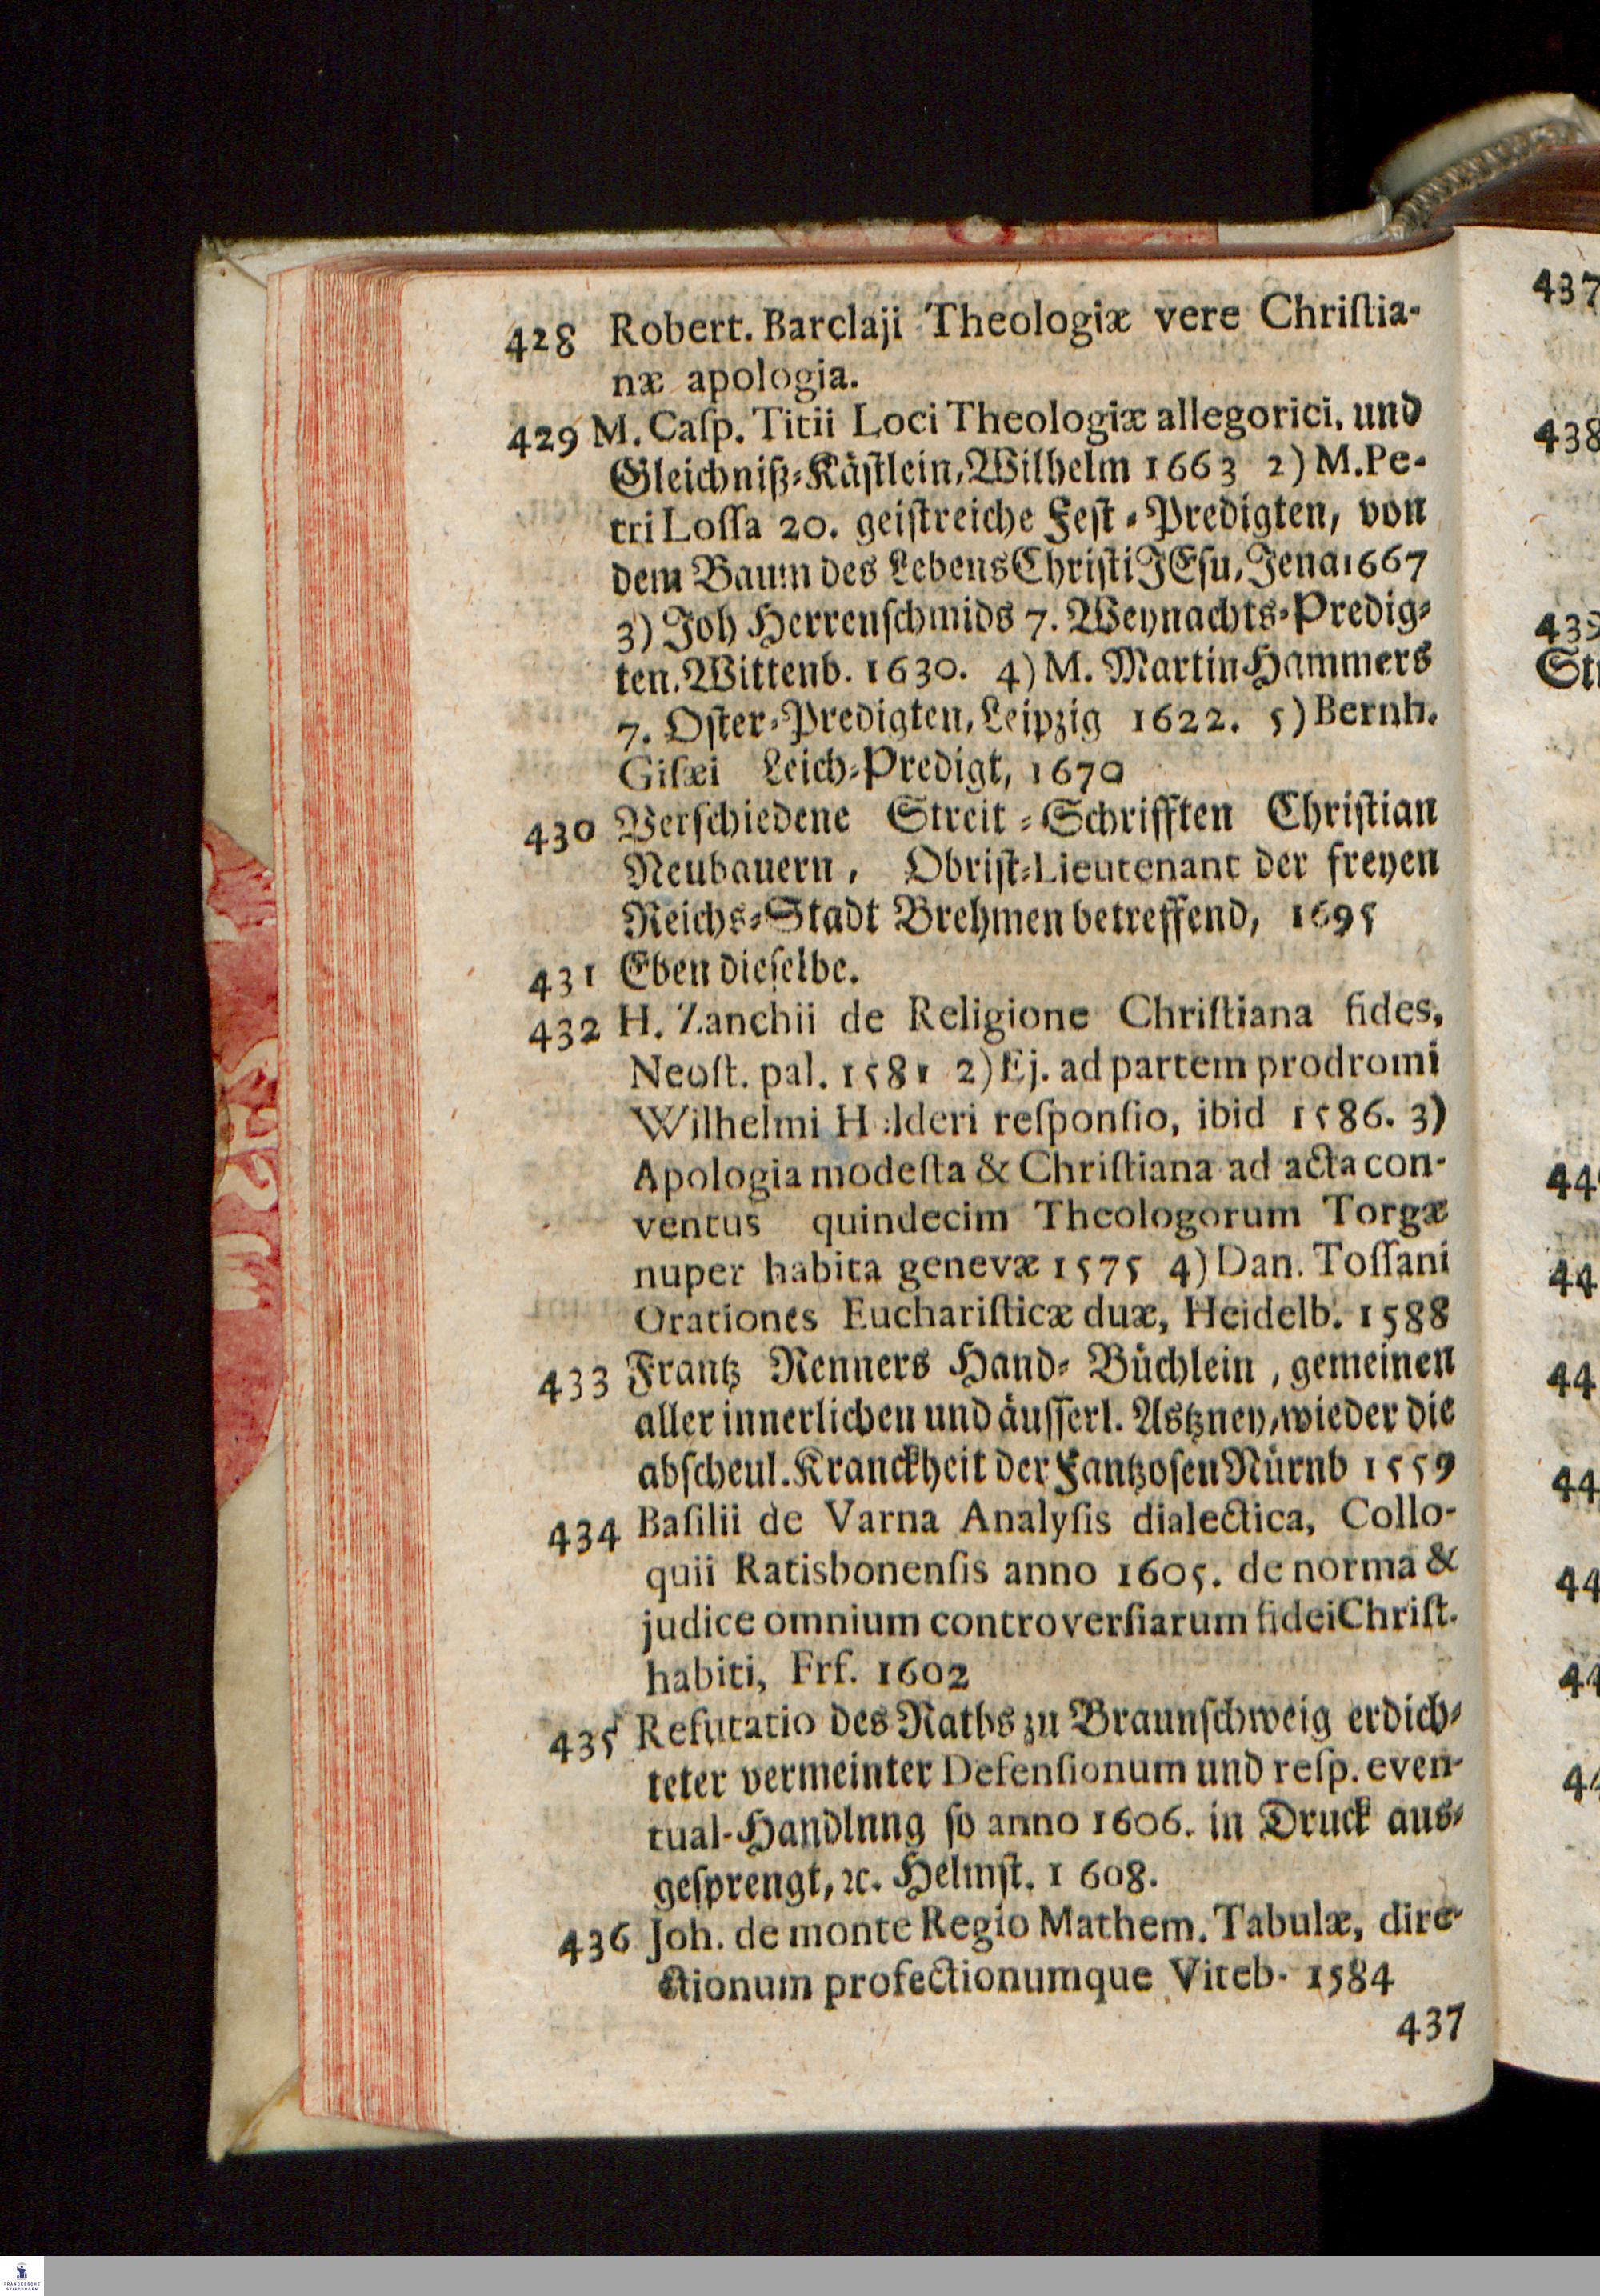 428 Robert. Barclaji Theologiæ vere Chriſtia-
næ apologia.
429 M. Caſp. Titii Loci Theologiæ allegorici, und
Gleichniß-Käſtlein, Wilhelm 1663 2) M. Pe-
tri Loſſa 20. geiſtreiche Feſt-Predigten, von
dem Baum des Lebens Chriſti JEſu, Jena 1667
3) Joh Herrenſchmids 7. Weynachts-Predig-
ten, Wittenb. 1630. 4) M. Martin Hammers
7. Oſter-Predigten, Leipzig 1622. 5) Bernh.
Giſæi Leich-Predigt, 1670
430 Verſchiedene Streit-Schrifften Chriſtian
Neubauern, Obriſt-Lieutenant der freyen
Reichs-Stadt Brehmen betreffend, 1695
431 Eben dieſelbe.
432 H. Zanchii de Religione Chriſtiana fides,
Neoſt. pal. 1581 2) Ej. ad partem prodromi
Wilhelmi reſponſio, ibid 1586. 3)
Apologia modeſta & Chriſtiana ad acta con-
ventus quindecim Theologorum Torgæ
nuper habita genevæ 1575 4) Dan. Toſſani
Orationes Euchariſticæ duæ, Heidelb. 1588
433 Frantz Renners Hand-Büchlein, gemeinen
aller innerlichen und äuſſerl. Astzney, wieder die
abſcheul. Kranckheit der Fantzoſen Nürnb 1559
434 Baſilii de Varna Analyſis dialectica, Collo-
quii Ratisbonenſis anno 1605. de norma &
judice omnium controverſiarum fidei Chriſt.
habiti, Frf. 1602
435 Refutatio des Raths zu Braunſchweig erdich-
teter vermeinter Defenſionum und reſp. even-
tual-Handlnng ſo anno 1606. in Druck aus-
geſprengt, ꝛc. Helmſt. 1608.
436 Joh. de monte Regio Mathem. Tabulæ, dire-
ctionum profectionumque Viteb. 1584
437
437
438
439
St
44
44
44
44
44
44
FRANCKESCHE
STIFTUNGEN